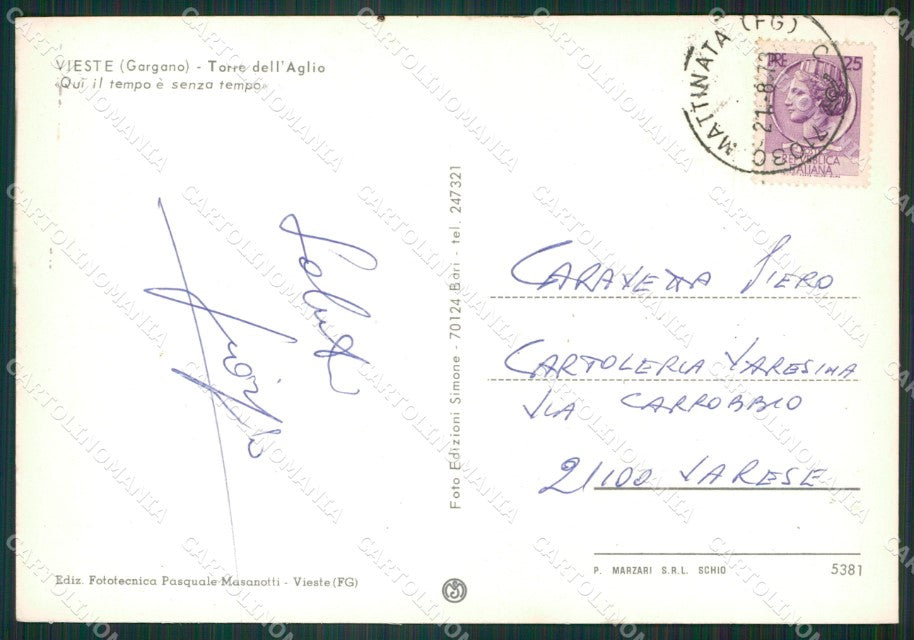 VIESTE (Gargano) - Torre dell'Aglio
«Qui il tempo è senza tempo»
MATTINATA (FG)
71030
LIRE 25
REPUBBLICA
ITALIANA
Saluti
Foto Edizioni Simone - 70124 Bari - tel. 247321
CARAVETTA PIERO
CARTOLERIA VARESINA
VIA CARROBBIO
21100 VARESE
Ediz. Fototecnica Pasquale Masanotti - Vieste (FG)
P. MARZARI S.R.L. SCHIO
5381
CARTOLINOMANIA